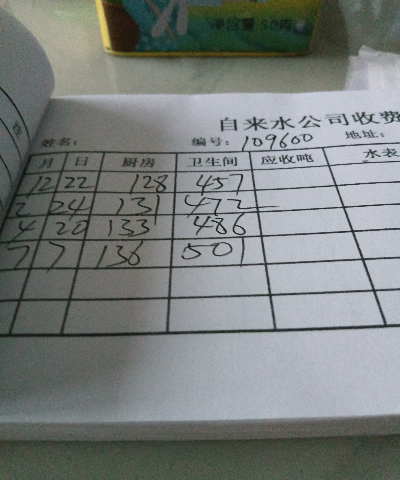 净含量 50克
自来水公司收费
姓名: 编号: 109600 地址:
月 日 厨房 卫生间 应收吨 水表
12 22 128 457
2 24 131 472
4 20 133 486
7 7 136 501